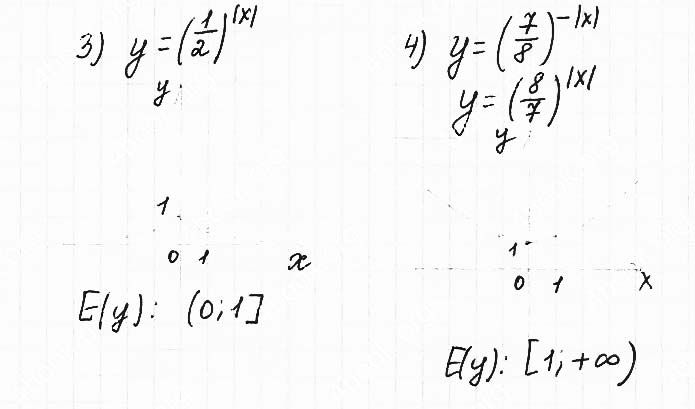 3) y = (1/2)^|x|
y
1
0 1 x
E(y): (0; 1]
4) y = (7/8)^-|x|
y = (8/7)^|x|
y
1
0 1 x
E(y): [1; +∞)